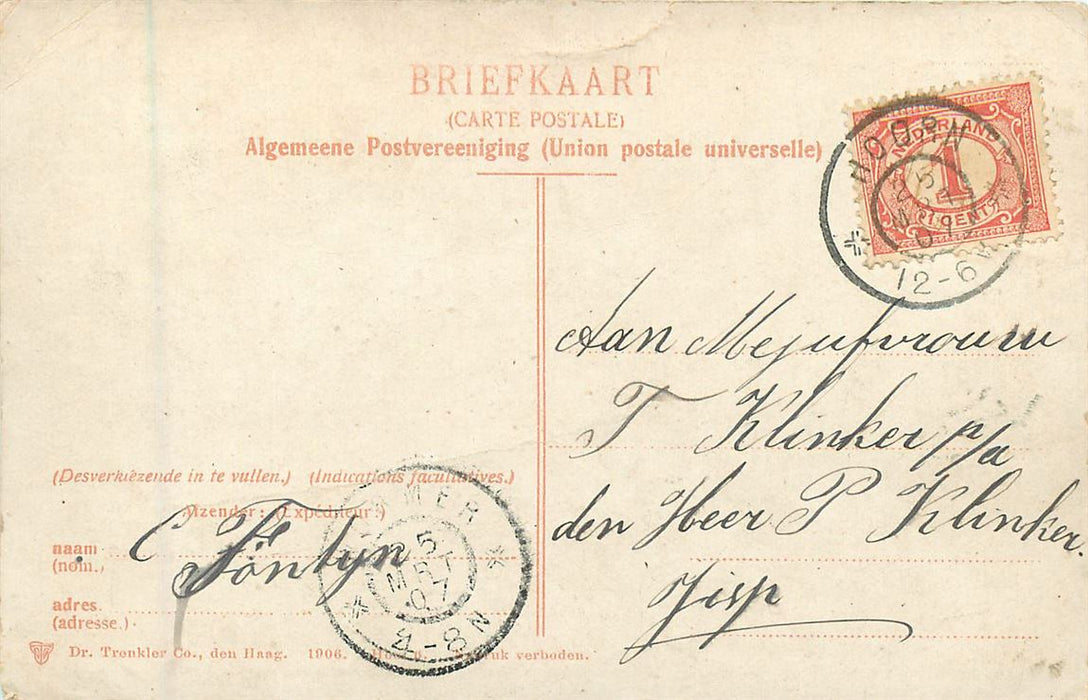 BRIEFKAART
(CARTE POSTALE)
Algemeene Postvereeniging (Union postale universelle)
NEDERLAND
1
CENT
HOORN
25
MRT
07
12-6
Aan Mejufvrouw
T Klinker p/a
den Heer P Klinker.
Jisp
(Desverkiezende in te vullen.) (Indications facultatives.)
Afzender: (Expéditeur:)
naam C Fontyn
(nom.)
adres.
(adresse.)
MER
25
MRT
07
4-8N
Dr. Trenkler Co., den Haag. 1906. druk verboden.